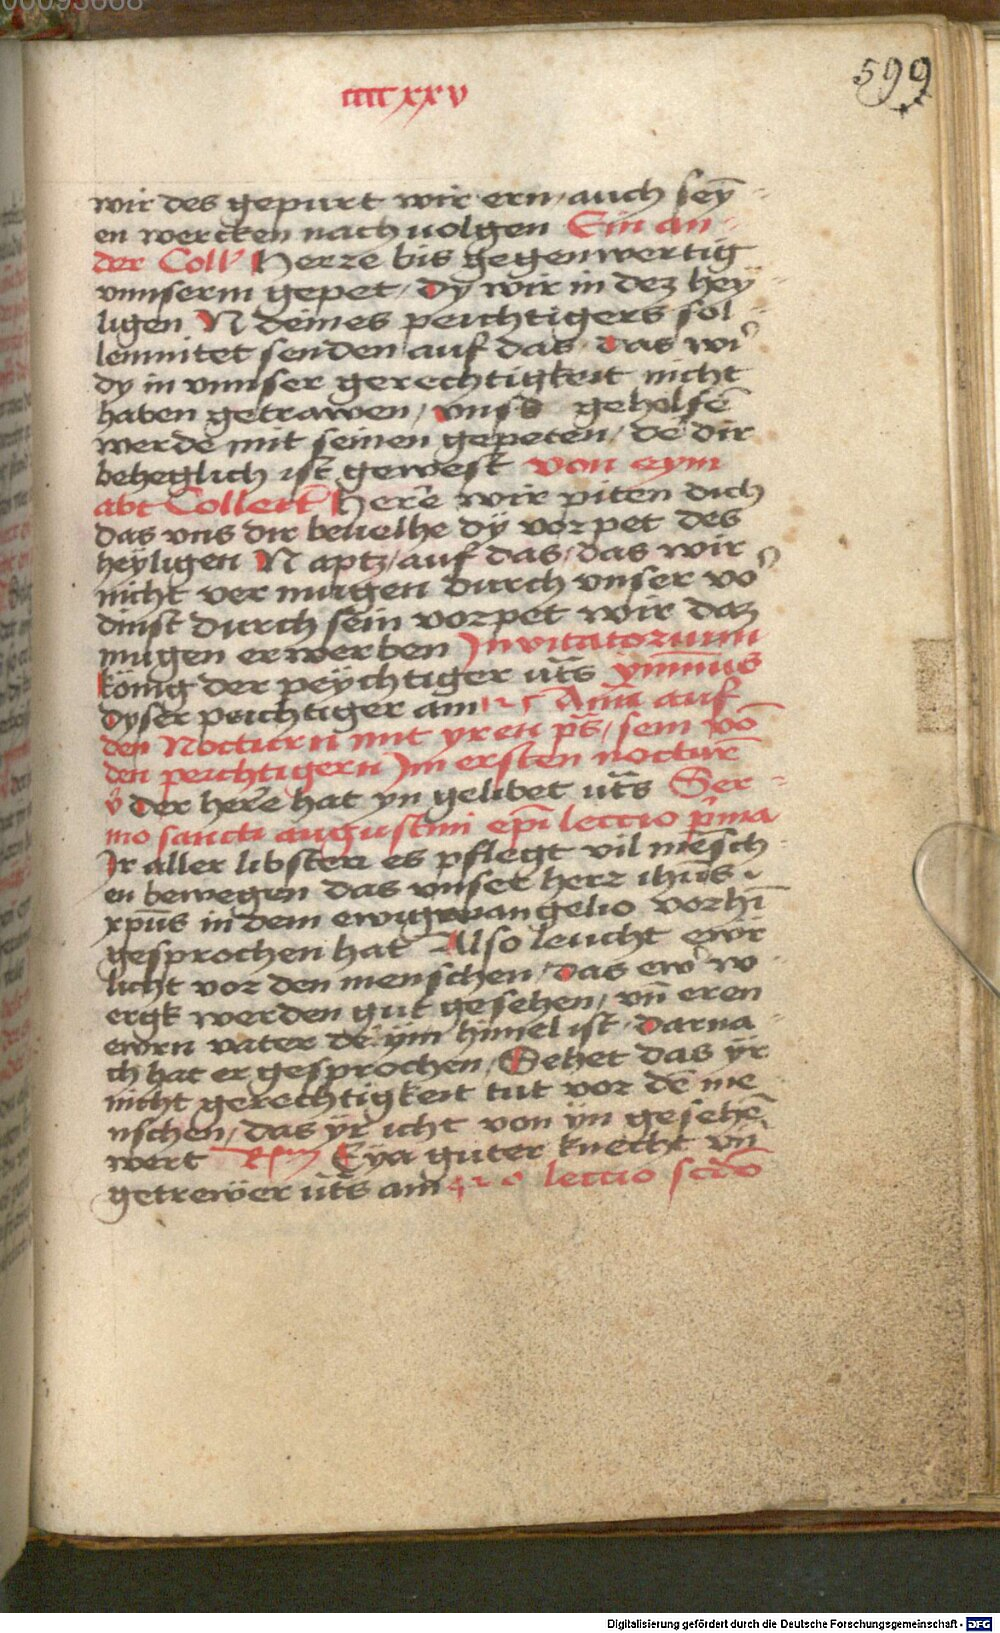 00093668
ccccxxv
599
wir des gepurt wir ern, auch sey̅
en wercken nach uolgen Ein an
der Coll' Herre bis gegenwertig
vnnserm gepet, dy wir in dez hey
ligen N deines peichtigers sol
lemnitet senden auf das, das wi'
dy in vnnser gerechtigkeit nicht
haben getrawen, vnns geholfe̅
werde mit seinen gepeten, de dir
beheglich ist gewest von eym
abt Collect' Here wir piten dich
das vns dir beuelhe dy vorpet des
heyligen N aptz, auf das, das wir
nicht ver mugen durch vnser vo'
dinst durch sein vorpet wir daz
mugen erwerben Jnvitatorium
könig der peychtiger ut̅s ymnus
dyser peichtiger am 121 Ann̅ auf
den Nocturn mit yren p̅s, sein vo̅
den peichtigern Jm ersten noctur̅
v' der here hat yn gelibet ut̅s Ser
mo sancti augustini ep̅i lectio p'ma
Jr aller libsten es pflegt vil me̅sch
en bewegen das vnser herr ihu̅s
xp̅us in dem ewangelio vorhi̅
gesprochen hat Also leucht ewr
licht vor den menschen, das ew' w
ergk werden gut gesehen, vn̅ eren
ewrn vater de' ym himel ist, darna
ch hat er gesprochen, Sehet das yr
nicht gerechtigkeit tut vor de̅ me
nschen, das yr icht von yn gesehe̅
wert Rsm̅ Eya guter knecht vn̅
getrewer ut̅s am lectio scd̅o
Digitalisierung gefördert durch die Deutsche Forschungsgemeinschaft - DFG